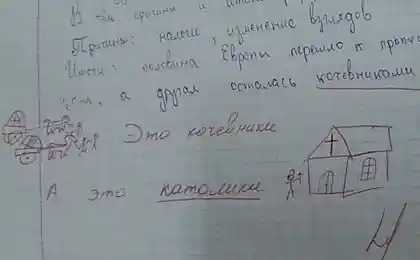 В чём причины и итоги
Причины: налоги, изменение взглядов
Итоги: половина Европы перешло к
а другая осталась кочевниками
Это кочевники
А это католики